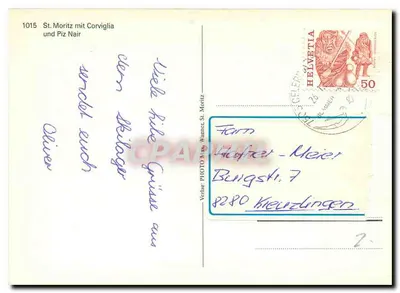 1015 St. Moritz mit Corviglia
und Piz Nair
Viele liebe Grüsse aus
dem Skilager
sendet euch
Oliver
HELVETIA
50
Verlag PHOTO Wagner, St. Moritz
Fam
Meier
Burgstr. 7
8280 Kreuzlingen
2.-